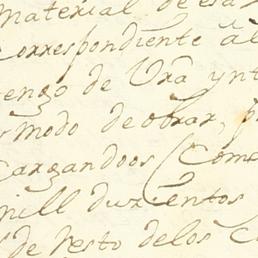 material de esa
Correspondiente al
tengo de Vra ynt
modo de obrar, p
Cargandoos (Come
mill duzientos
de resto delos C